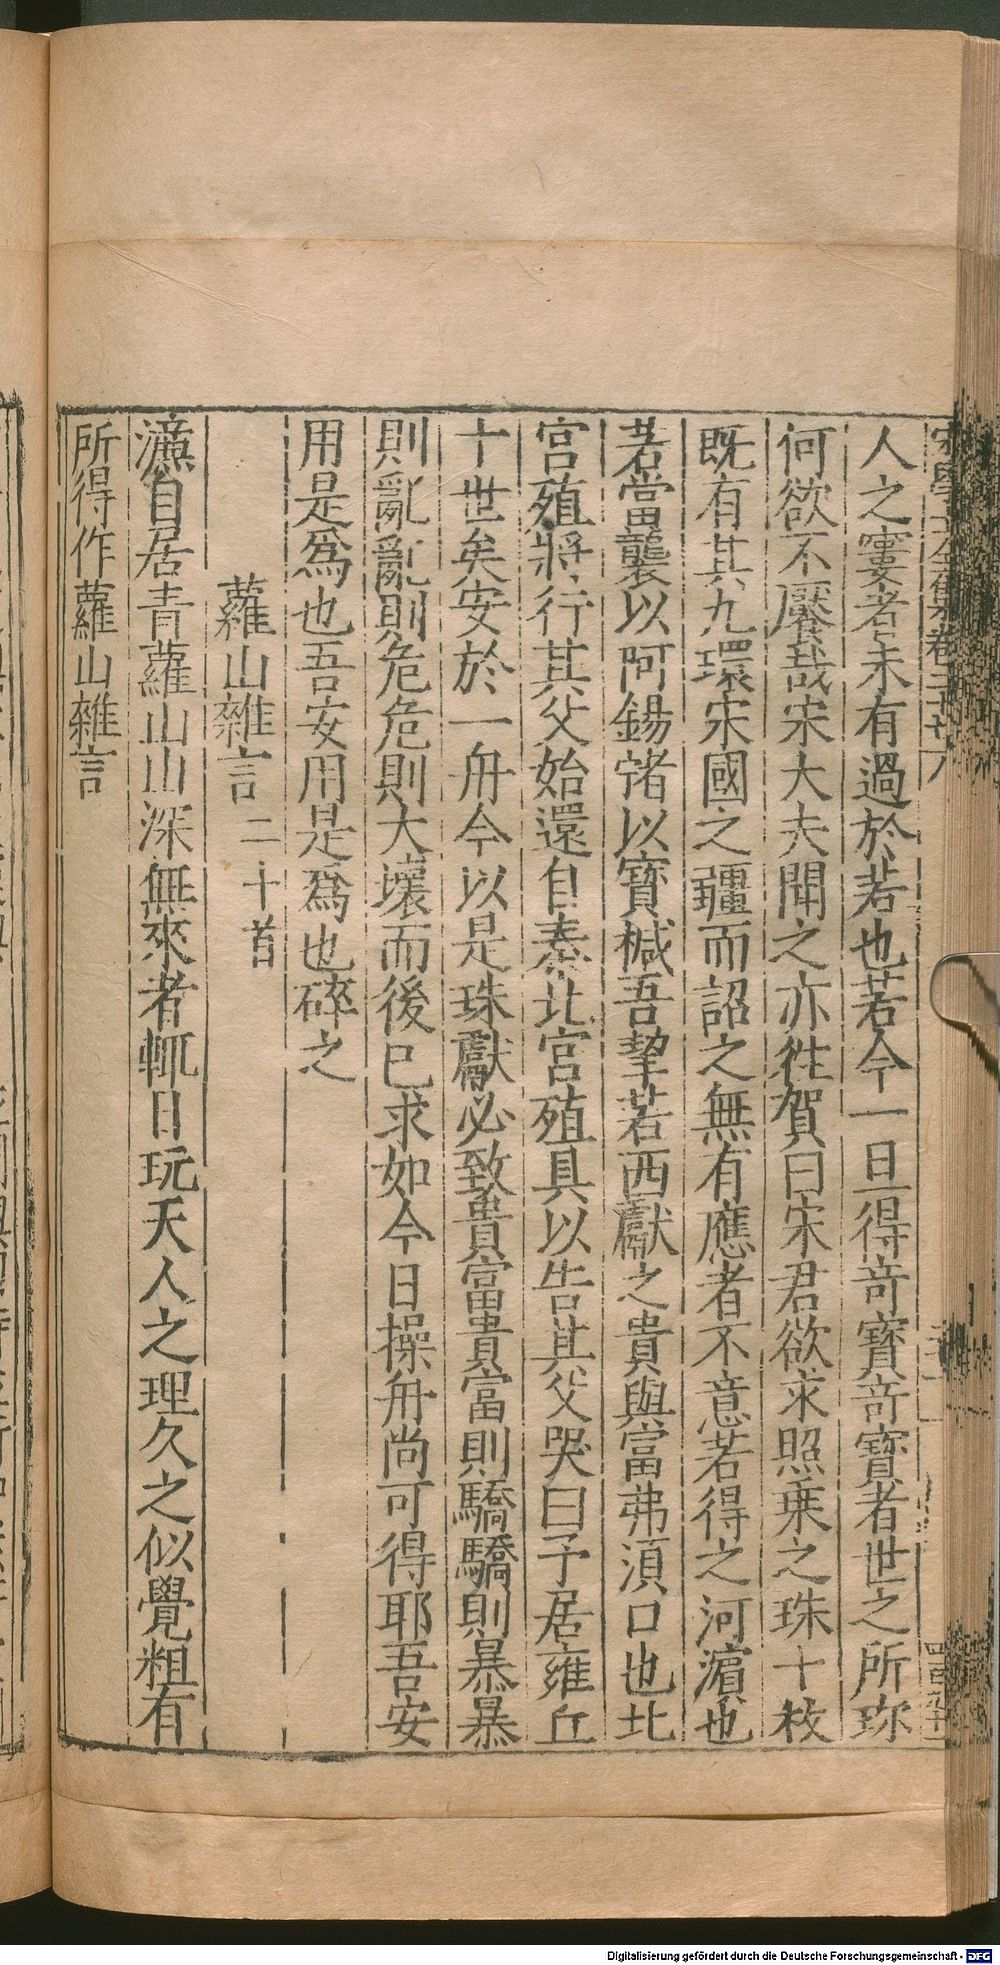 宋學士全集卷二十八
人之窶者未有過於若也若今一旦得奇寶奇寶者世之所珎
何欲不饜哉宋大夫聞之亦徃賀曰宋君欲求照乗之珠十枚
既有其九環宋國之疆而詔之無有應者不意若得之河濵也
若當襲以阿錫㡯以寶椷吾摯若西獻之貴與富弗湏口也北
宮殖將行其父始還自秦北宮殖具以告其父哭曰予居雍丘
十世矣安於一舟今以是珠獻必致貴富貴富則驕驕則暴暴
則亂亂則危危則大壞而後已求如今日操舟尚可得耶吾安
用是爲也吾安用是爲也碎之
蘿山雜言二十首
濂自居青蘿山山深無來者輒日玩天人之理久之似覺粗有
所得作蘿山雜言
Digitalisierung gefördert durch die Deutsche Forschungsgemeinschaft - DFG